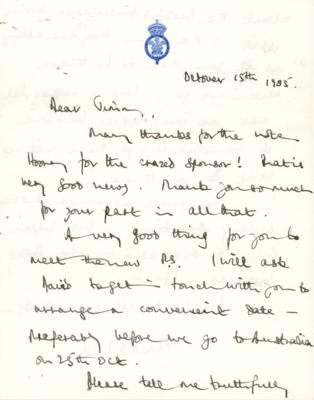 October 15th 1985.
Dear Jimmy,
Many thanks for the note.
Hooray for the crazed sponsor! That is
very good news. Thank you so much
for your part in all that.
A very good thing for you to
meet the new P.S. I will ask
David to get in touch with you to
arrange a convenient date –
preferably before we go to Australia
on 25th Oct.
Please tell me truthfully